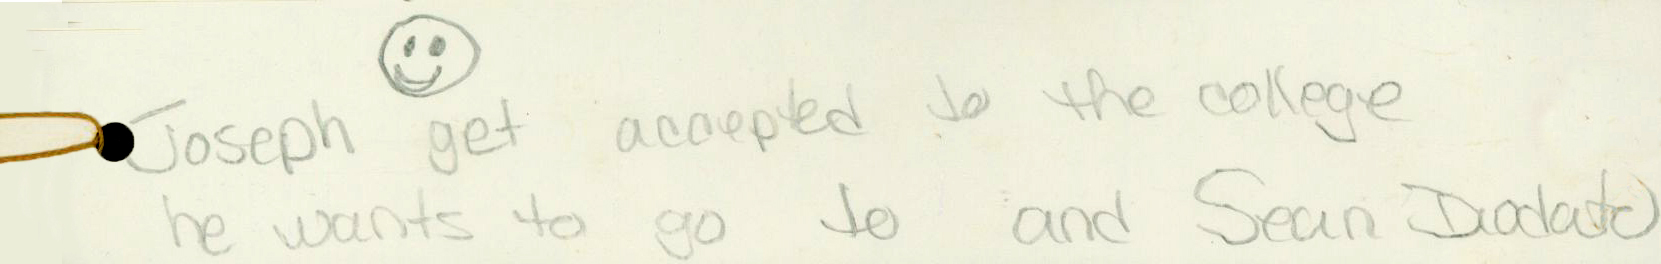 Joseph get accepted to the college
he wants to go to and Sean Diodato